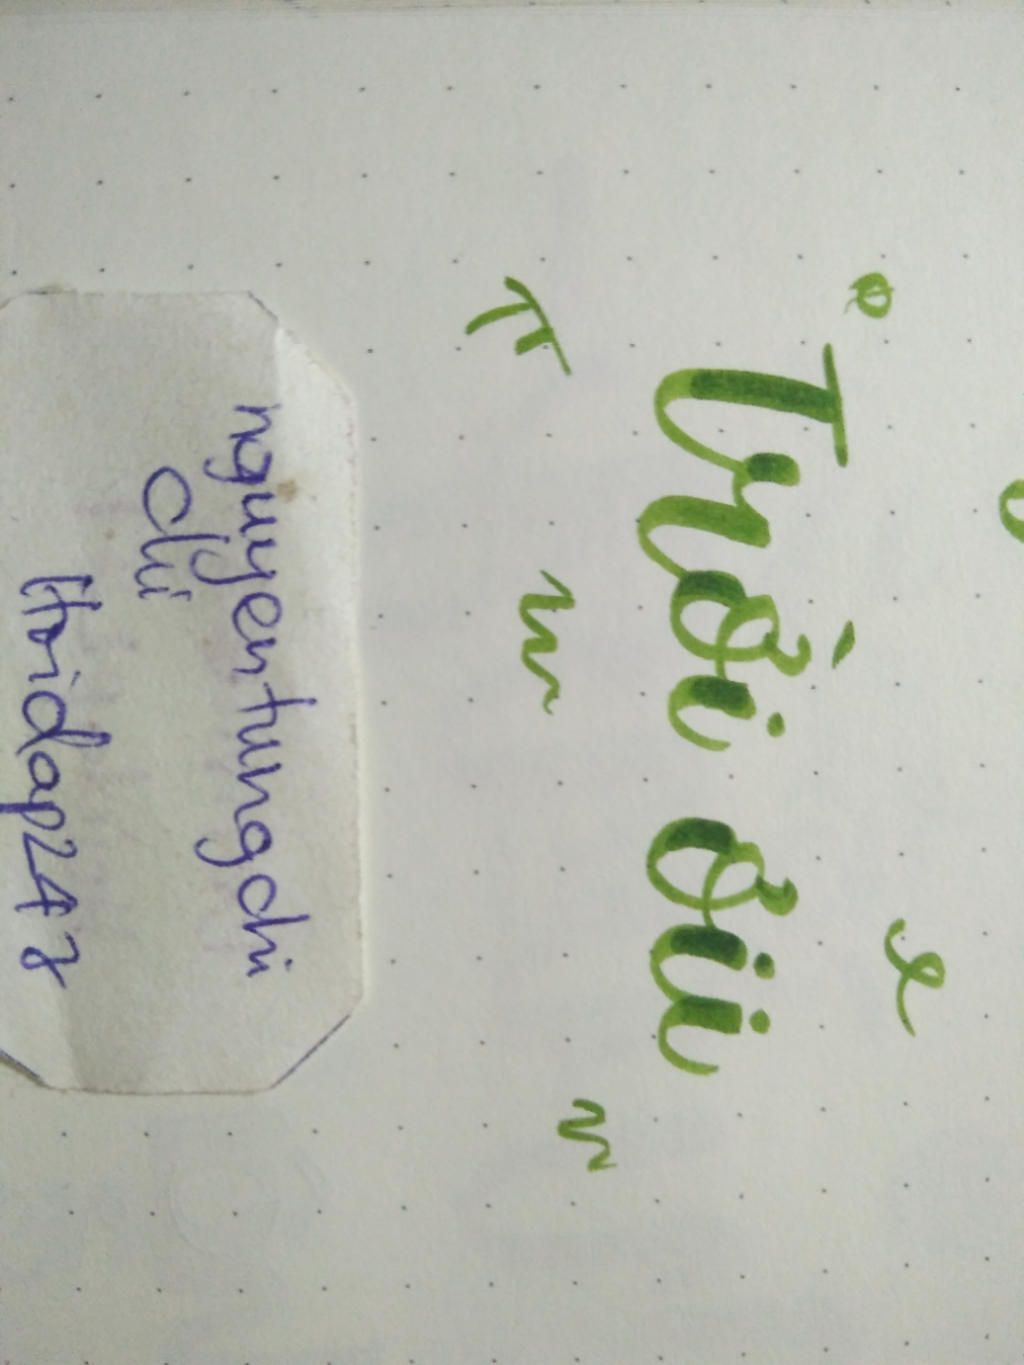 Trời ơii
nguyentungchi
chi
Hoidap247